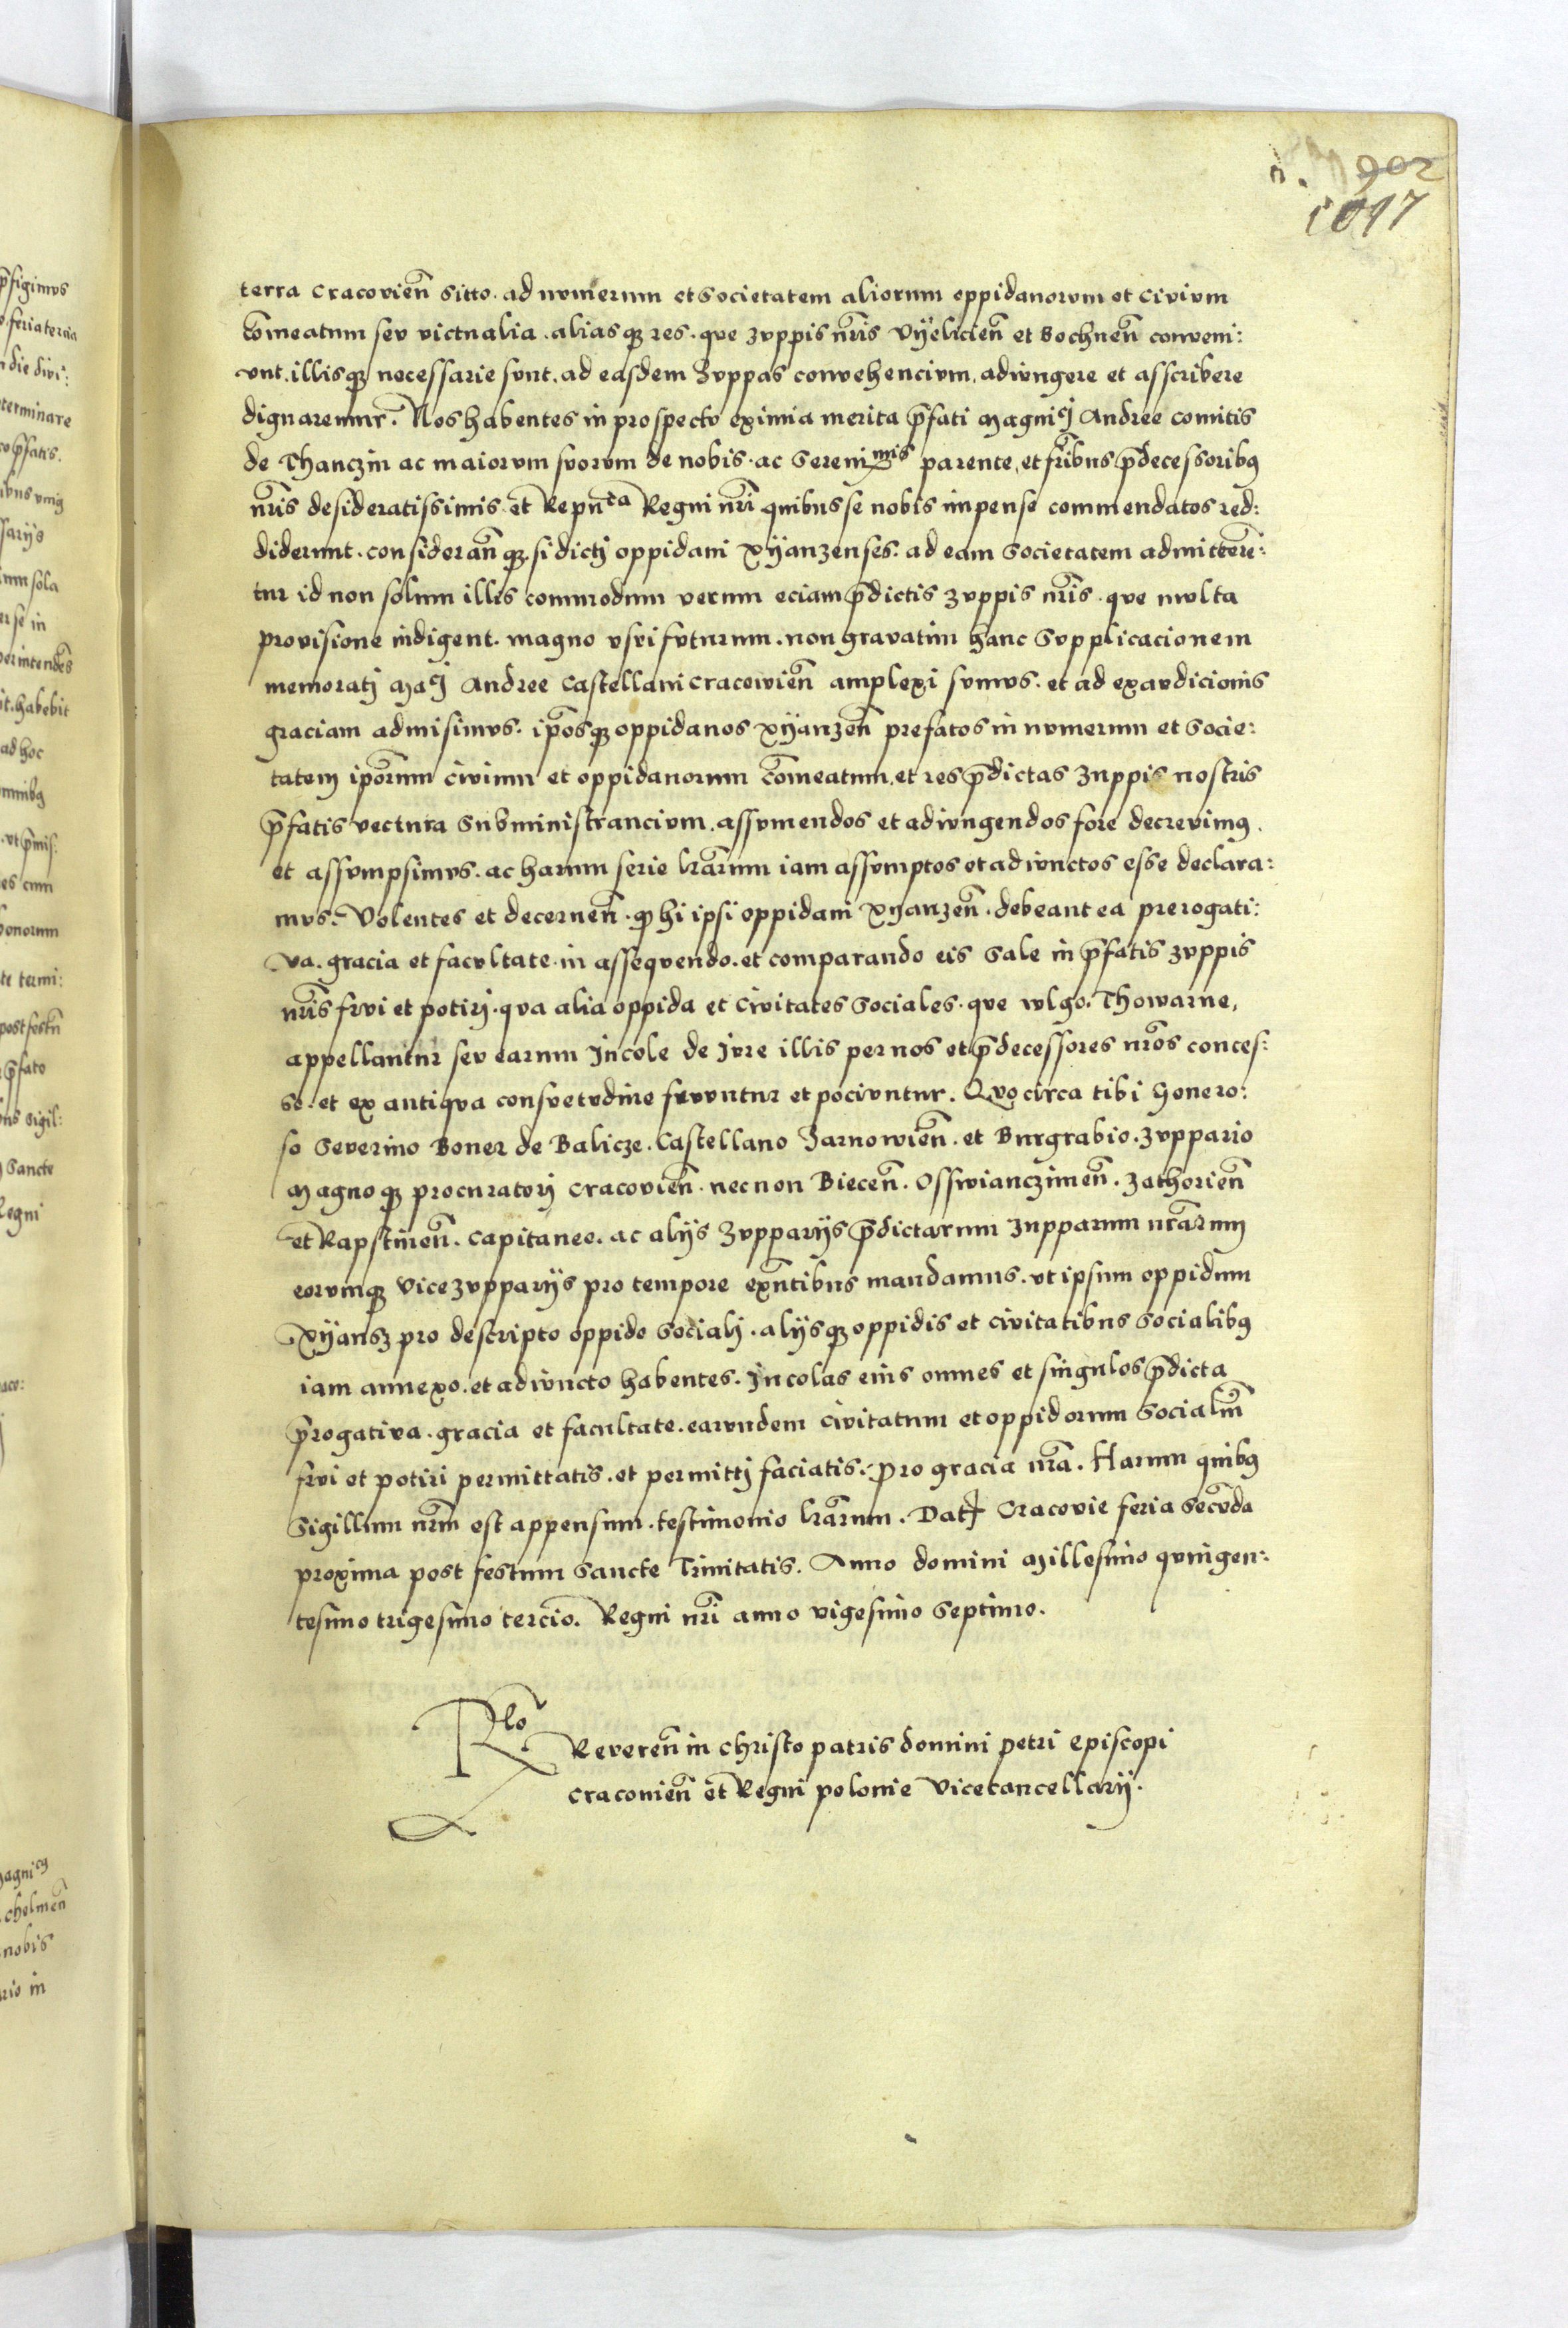 902
1097
terra Cracovien̄ sitto. ad numerum et societatem aliorum oppidanorum et Civium
Com̄eatum seu victualia. aliasqꝫ res. que zuppis nr̄is Vÿelicien̄ et Bochnen̄ conveni:
unt. illisqꝫ necessarie sunt. ad easdem Zuppas convehencium. adiungere et asscribere
dignaremur. Nos habentes in prospectu eximia merita p̄fati Magniᶜⱼ Andree Comitis
de Thanczin ac maiorum suorum de nobis. ac Sereniᵐⁱˢ parente, et fr̄ibus p̄decessoribꝫ
nr̄is desideratissimis. et Repūᶜᵃ Regni nr̄i quibus se nobis impense commendatos red:
diderunt. consideran̄qꝫ. si dictj oppidani Xÿanzenses. ad eam societatem admitteren̄:
tur id non solum illis commodum verum eciam p̄dictis zuppis nr̄is. que multa
provisione indigent. magno usui futurum. non gravatim hanc Supplicacionem
memoratj Maᶜⱼ Andree Castellani Cracovien̄ amplexi sumus. et ad exaudicionis
graciam admisimus. ip̄osqꝫ oppidanos Xÿanzen̄ prefatos in numerum et Socie:
tatem ip̄orum civium et oppidanorum Com̄eatum. et res p̄dictas zuppis nostris
p̄fatis vectura subministrancium. assumendos et adiungendos fore decrevimꝰ.
et assumpsimus. ac harum serie lr̄arum iam assumptos et adiunctos esse declara:
mus. Volentes et decernen̄. ꝙ hi ipsi oppidani Xÿanzen̄. debeant ea prerogati:
va. gracia et facultate. in assequendo. et comparando eis Sale in p̄fatis zuppis
nr̄is frui et potirj. qua alia oppida et Civitates Sociales. que vulgo. Thowarne,
appellantur seu earum Jncole de Jure illis per nos et p̄decessores nr̄os conces:
so. et ex antiqua consuetudine fruuntur et pociuntur. Quocirca tibi Genero:
so Severino Boner de Balicze. Castellano Zarnowien̄. et Burgrabio. zuppario
Magnoqꝫ procuratorj Cracovien̄. necnon Biecen̄. Osswianczimen̄. Zathorien̄
et Rapstinen̄. Capitaneo. ac alijs Zupparijs p̄dictarum zupparum nr̄arum
eorumqꝫ vicezupparijs pro tempore exn̄tibus mandamus. ut ipsum oppidum
Xÿansz pro descripto oppido socialj. alijsqꝫ oppidis et civitatibus socialibꝫ
iam annexo. et adiuncto habentes. Jncolas eius omnes et singulos p̄dicta
p̄rogativa. gracia et facultate. earundem civitatum et oppidorum Socialiū
frui et potiri permittatis. et permittj faciatis. pro gracia nr̄a. Harum quibꝫ
Sigillum nr̄m est appensum. testimonio lr̄arum. Datͩ Cracovie feria Secūda
proxima post festum Sancte Trinitatis. Anno domini Millesimo quingen:
tesimo trigesimo tercio. Regni nr̄i anno vigesimo Septimo.
Rˡᵒ
Reveren̄ in Christo patris domini Petri Episcopi
Cracovien̄ et Regni Polonie Vicecancellarij.